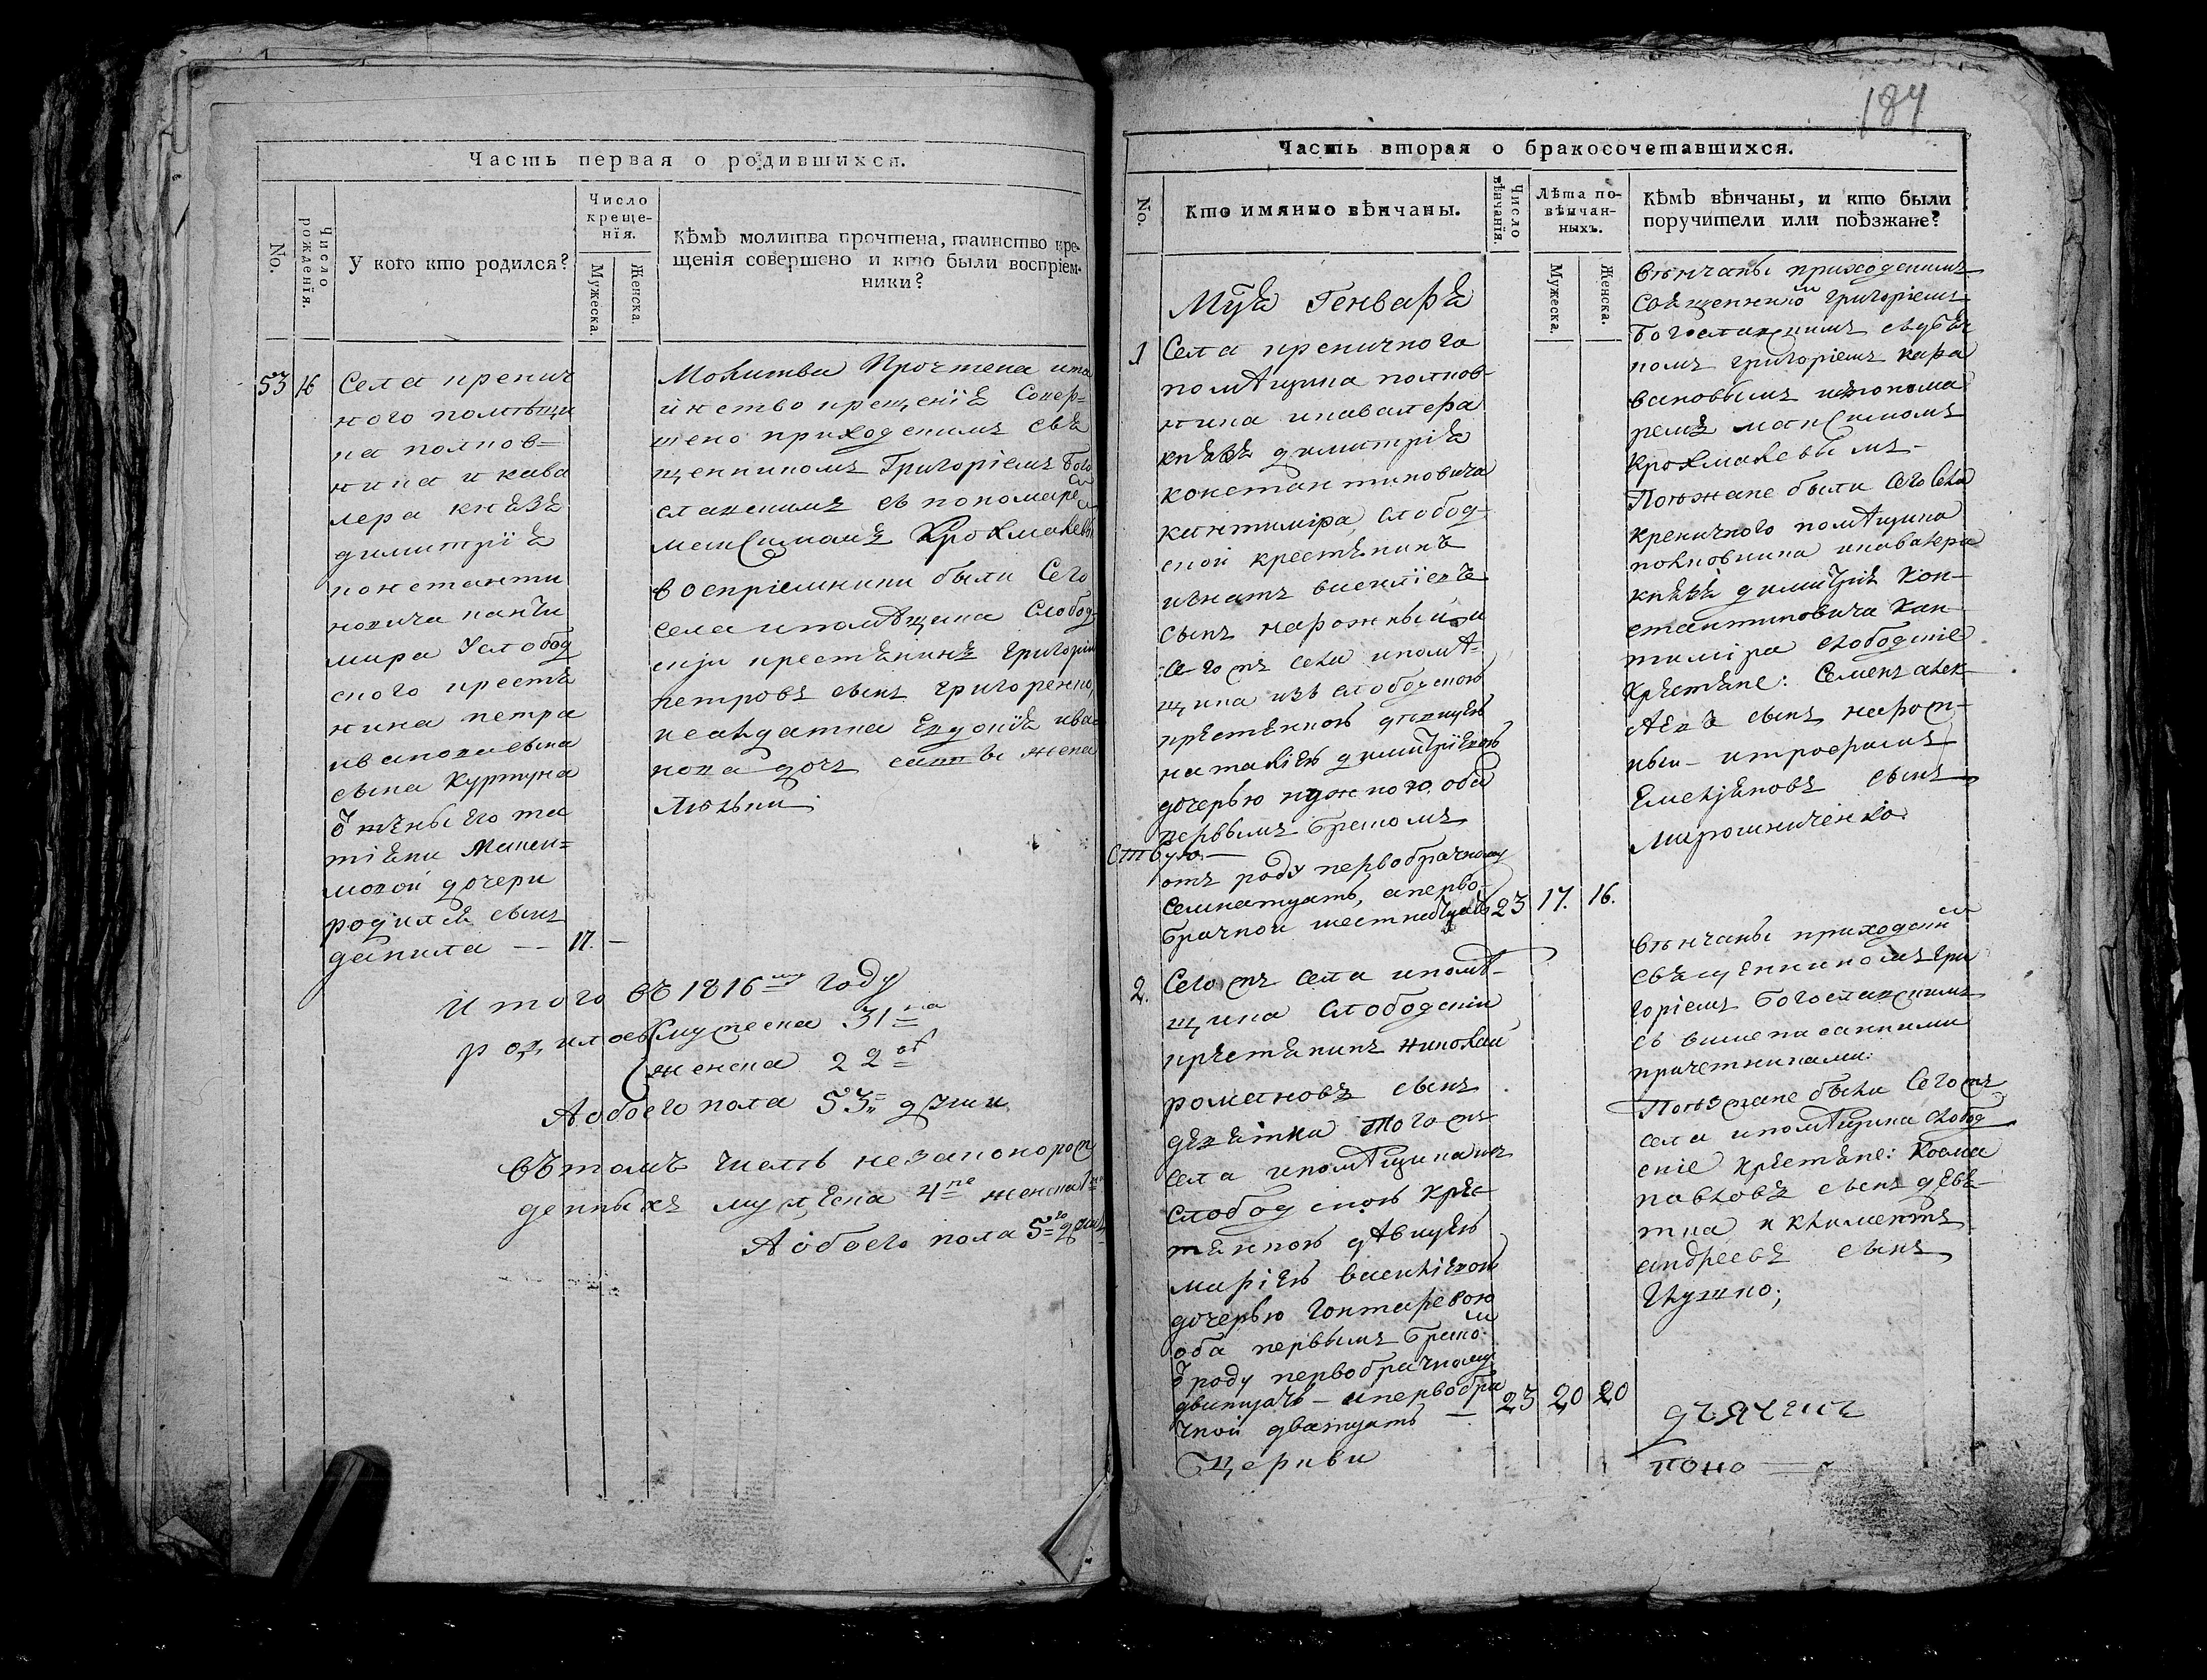 Часть первая о родившихся.
No.
Число рожденїя.
У кого кто родился?
Число
креще-
нїя.
Мужеска.
Женска.
Кѣмъ молитва прочтена, таинство кре-
щенїя совершено и кто были воспрїем-
ники?
53
16
Села кренич
ного помѣщи
ка полков=
ника и кава
лера князя
димитрїя
константи
новича канти
мира Услобод
ского крестя
нина петра
иванова сына
сына Куртука
ѿ жены его та
тїяни Макси=
мовой дочери
родился сынъ
данила -- 17. —
Молитва Прочтена ита
инство крещенїя Совер=
шено приходскимъ свя
щенникомъ Григорїемъ Бого
славскимъ съ пономаремъ
Максимомъ Крохмалевы
воспрїемники были Сего
села ипомѣщика Слобод
скїи крестянинъ григорїи
петровъ сынъ григоренко,
исолдатка Евдокїя ива
нова дочь жена
Итого въ 1816мъ году
родилось мужеска 31на
женска 22ѣ
А обоего пола 53= души
Въ томъ числѣ незаконорож
денныхъ мужеска 4ре женска 1на
А обоего пола 5ть душъ
184
Часть вторая о бракосочетавшихся.
No.
Кто имянно вѣнчаны.
Число вѣнчанїя.
Лѣта по-
вѣнчан-
ныхъ.
Мужеска.
Женска.
Кѣмъ вѣнчаны, и кто были
поручители или поѣзжане?
Мцѧ Генваря
1
Села креничного
помѣщика полков-
ника икавалера
князя димитрїя
константиновича
кантимїра, слобод
ской крестянинъ
игнатъ василїевъ
сынъ нарожный и
сегожъ села ипомѣ-
щика изъ слободскою
крестянкою девицею
наталїею димитрїевою
дочерью обa
первымъ бракомъ
отъ роду первобрачному
семнатцать, аперво-
брачной шестнатцать
23
17.
16.
вѣнчаны приходскимъ
Священникомъ григорїемъ
Богославскимъ съдьяч
комъ григорїемъ кара
вановымъ ипонома
ремъ максимомъ
крохмалевымъ -
Поѣзжане были Сего села
креничного помѣщика
полковника икавалера
князя димитрїя Кон-
стантиновича Кан-
тимїра слободскїе
крестяне: Семенъ алек-
сѣевъ сынъ нарож-
ный - итрофимъ
Емелїяновъ сынъ
Мирошниченко
2.
Сегожъ села ипомѣ-
щика слободскїи
крестянинъ николай
романовъ сынъ
девятка тогожъ
села ипомѣщика изъ
слободскою крес-
тянкою дѣвицею
марїею василїевою
дочерью гонтаревою
оба первымъ бракомъ
ѿ роду первобрачному
дватцать - апервобра
чной дватцать —
23
20
20
Вѣнчаны приходскимъ
священникомъ гри
горїемъ Богославскимъ
съ вишеписанними
причетниками:
Поѣзжане были Сегожъ
села ипомѣщика слобод
скїе крестяне: Косма
павловъ сынъ девя-
тка и климентъ
андреевъ сынъ
Глушко;
Церкви
дъячекъ
поно